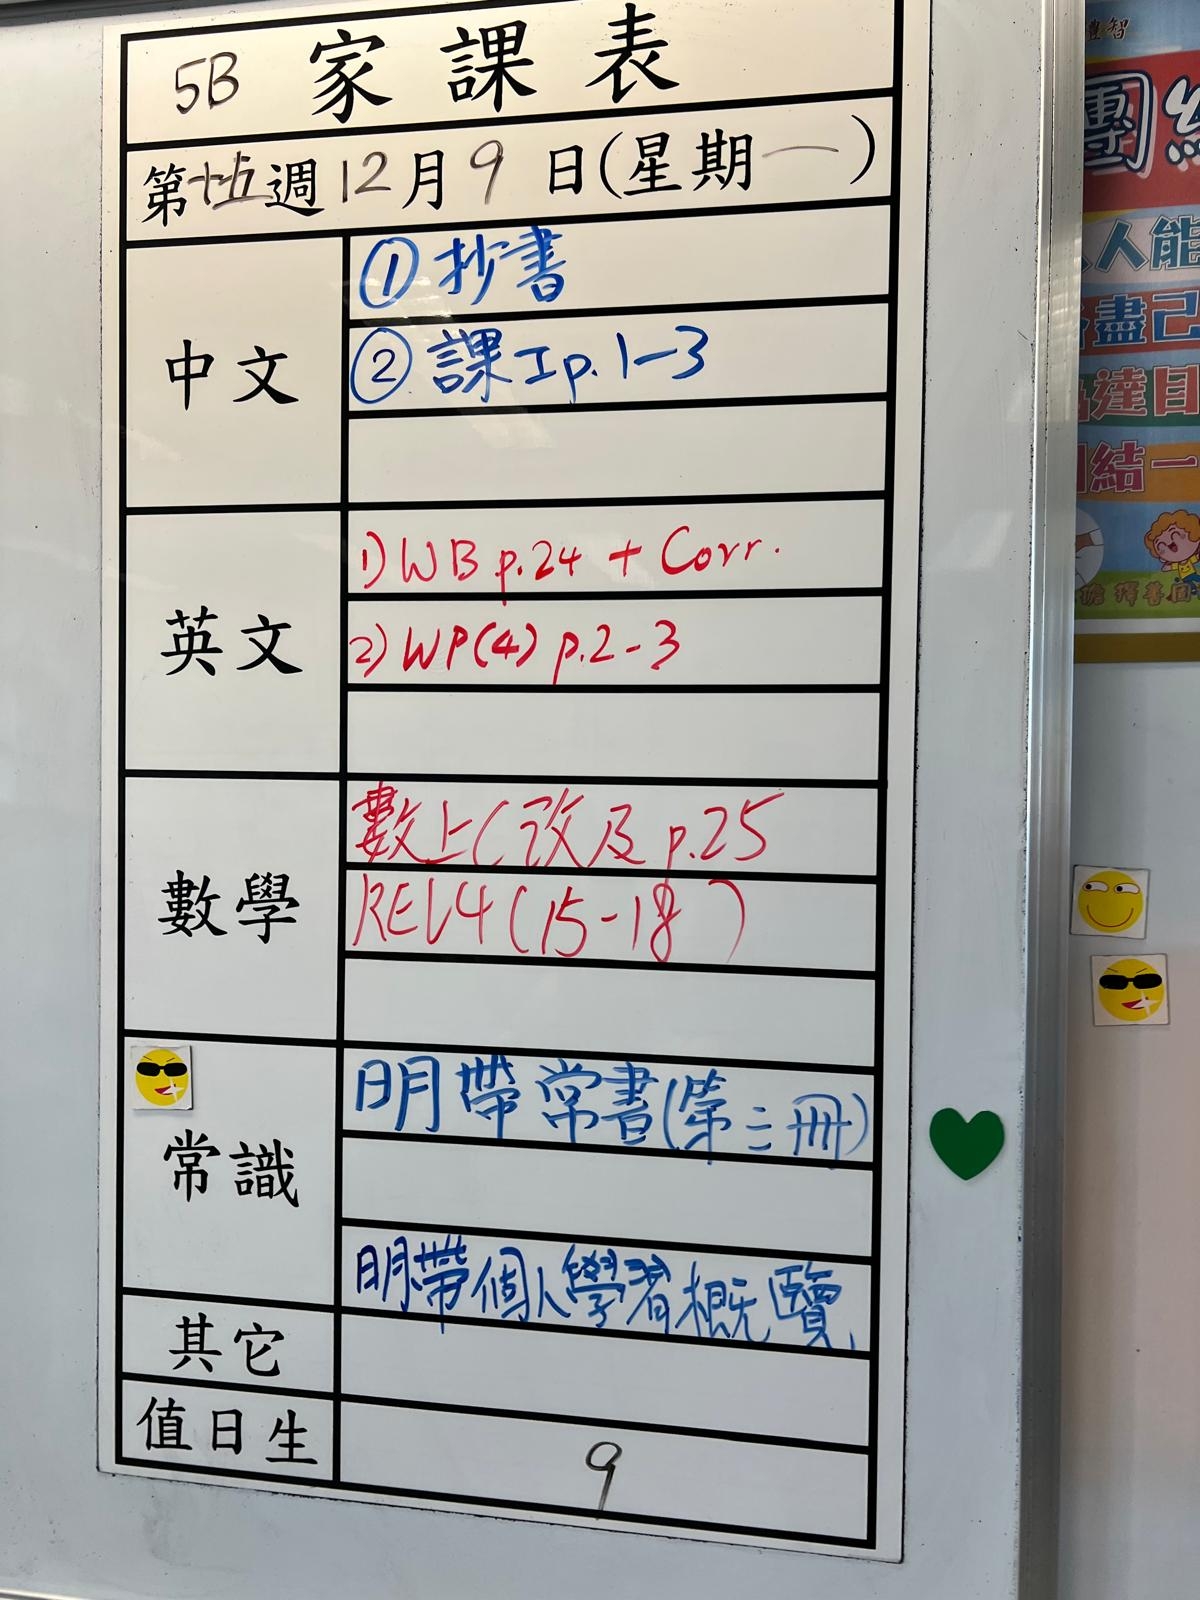 5B 家課表
第十五週12月9日(星期一)
中文
① 抄書
② 課工p.1-3
英文
1) WB p.24 + Corr.
2) WP(4) p.2-3
數學
數上C改及p.25
REV4(15-18)
常識
明帶常書(第二冊)
明帶個人學習概覽
其它
值日生
9
團結
人能
盡己
達目
結一